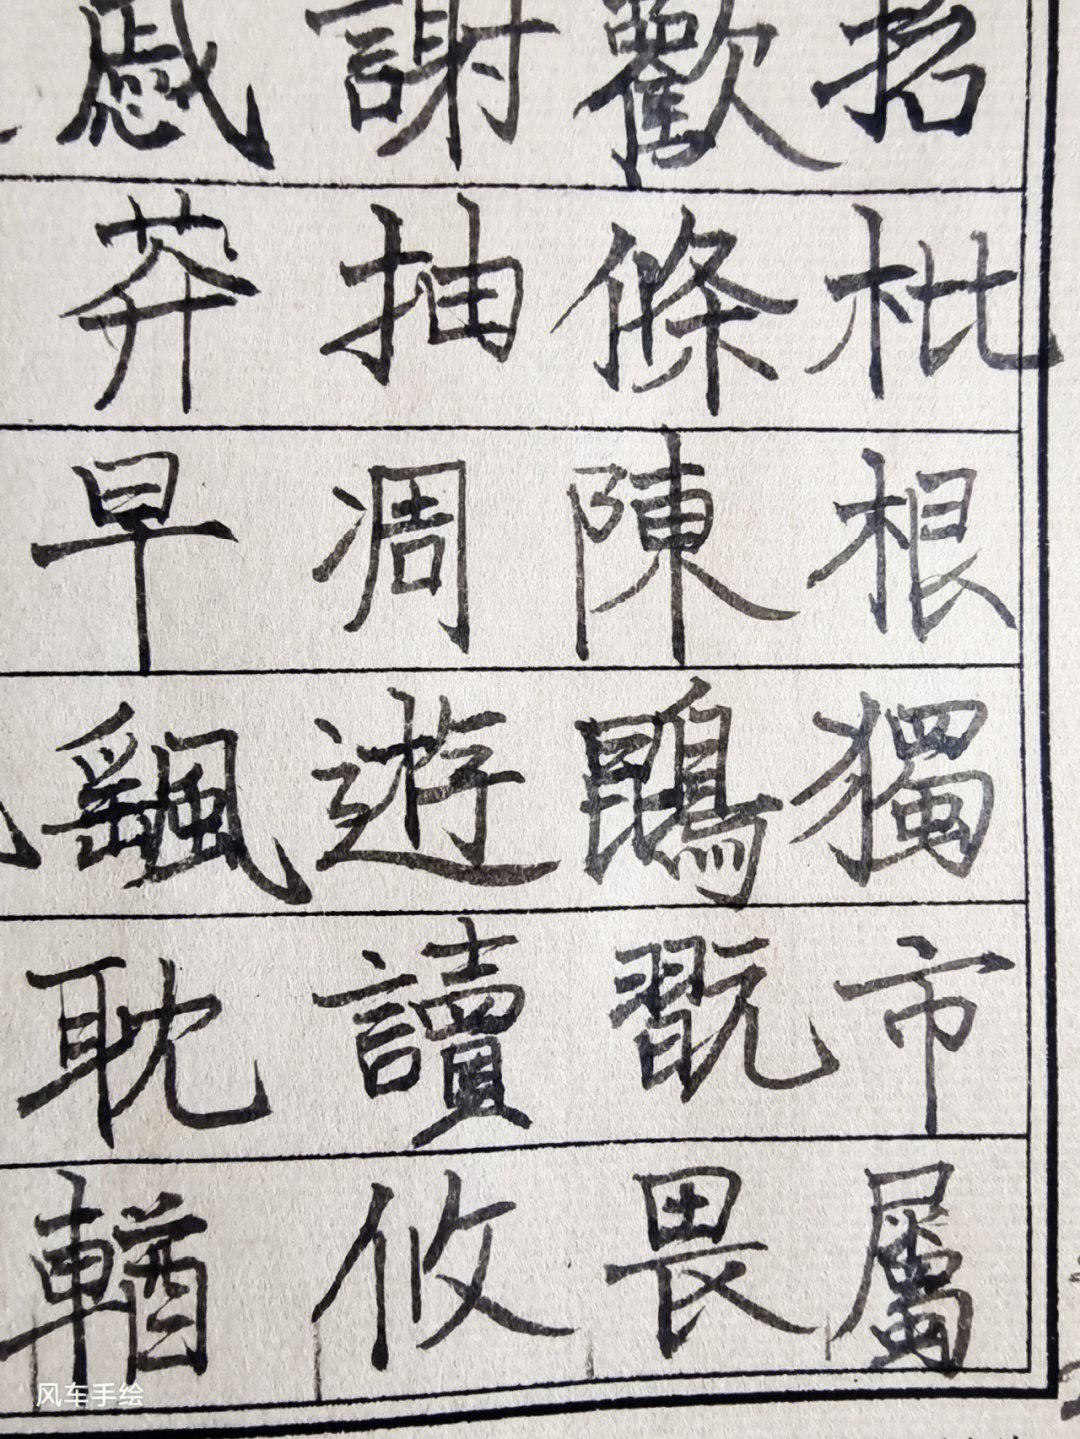 慼謝歡招
莽抽條枇
早凋陳根
颻遊鵾獨
耽讀翫市
輶攸畏屬
风车手绘